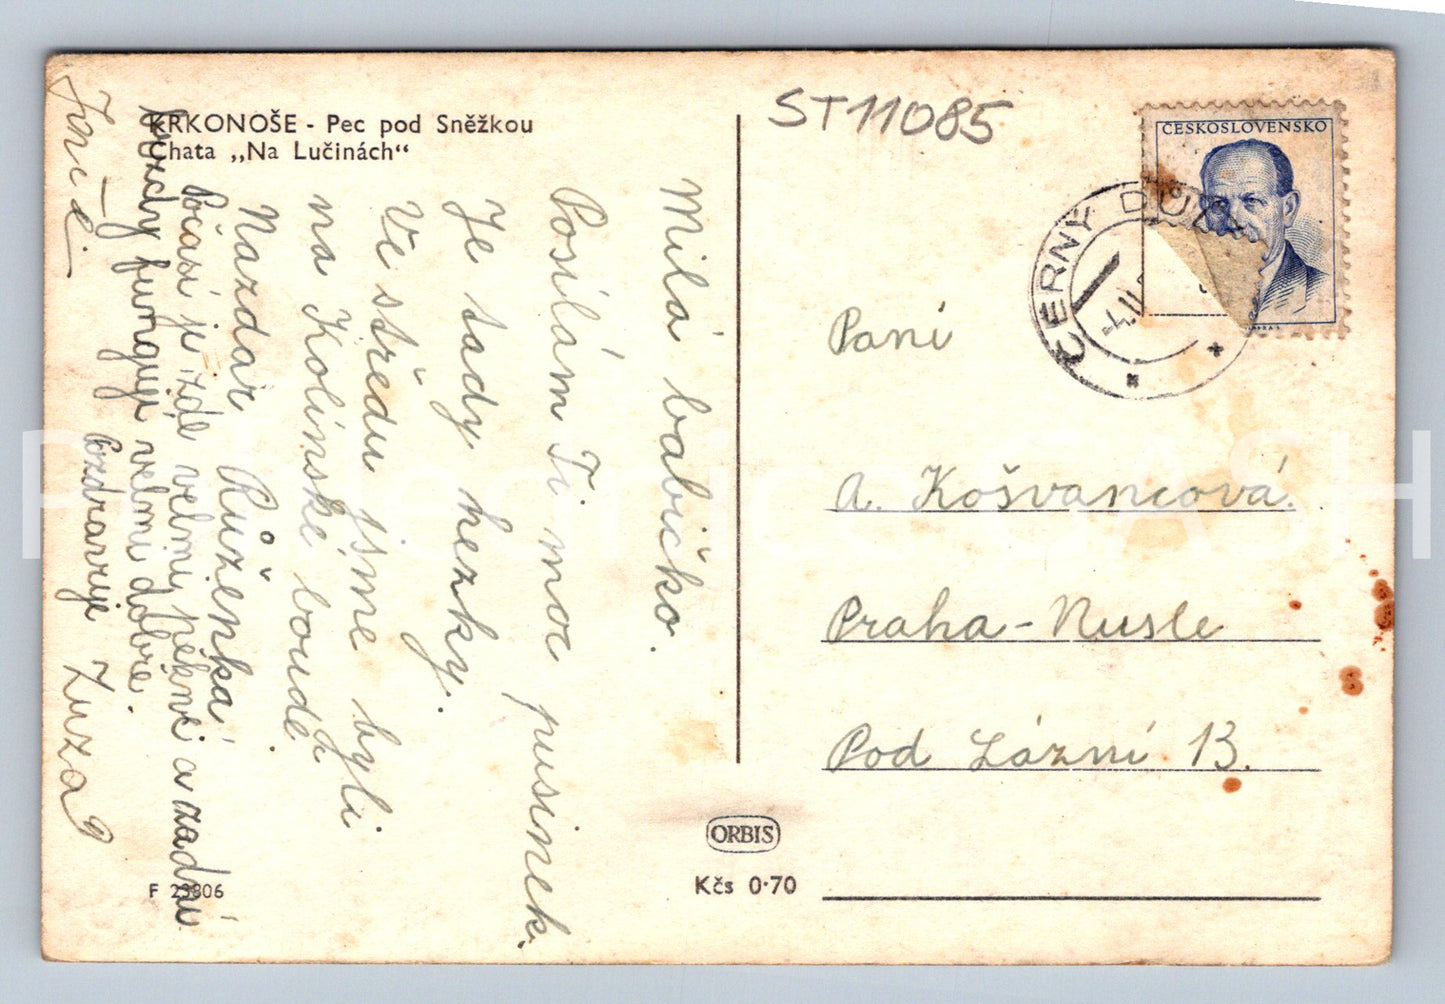 KRKONOŠE - Pec pod Sněžkou
Chata „Na Lučinách“
ST11085
ČESKOSLOVENSKO
ČERNÝ DŮL
-4.II.
Milá babičko.
Posílám Ti moc pusinek.
Je tady hezky.
Ve středu jsme byli
na Kolínské boudě
Nazdar Růženka
Počasí je zde velmi pěkné a zadní
funguje velmi dobře.
Pozdravuje Zuza
Paní
A. Košvancová.
Praha-Nusle
Pod Lázní 13.
ORBIS
Kčs 0·70
F 23806